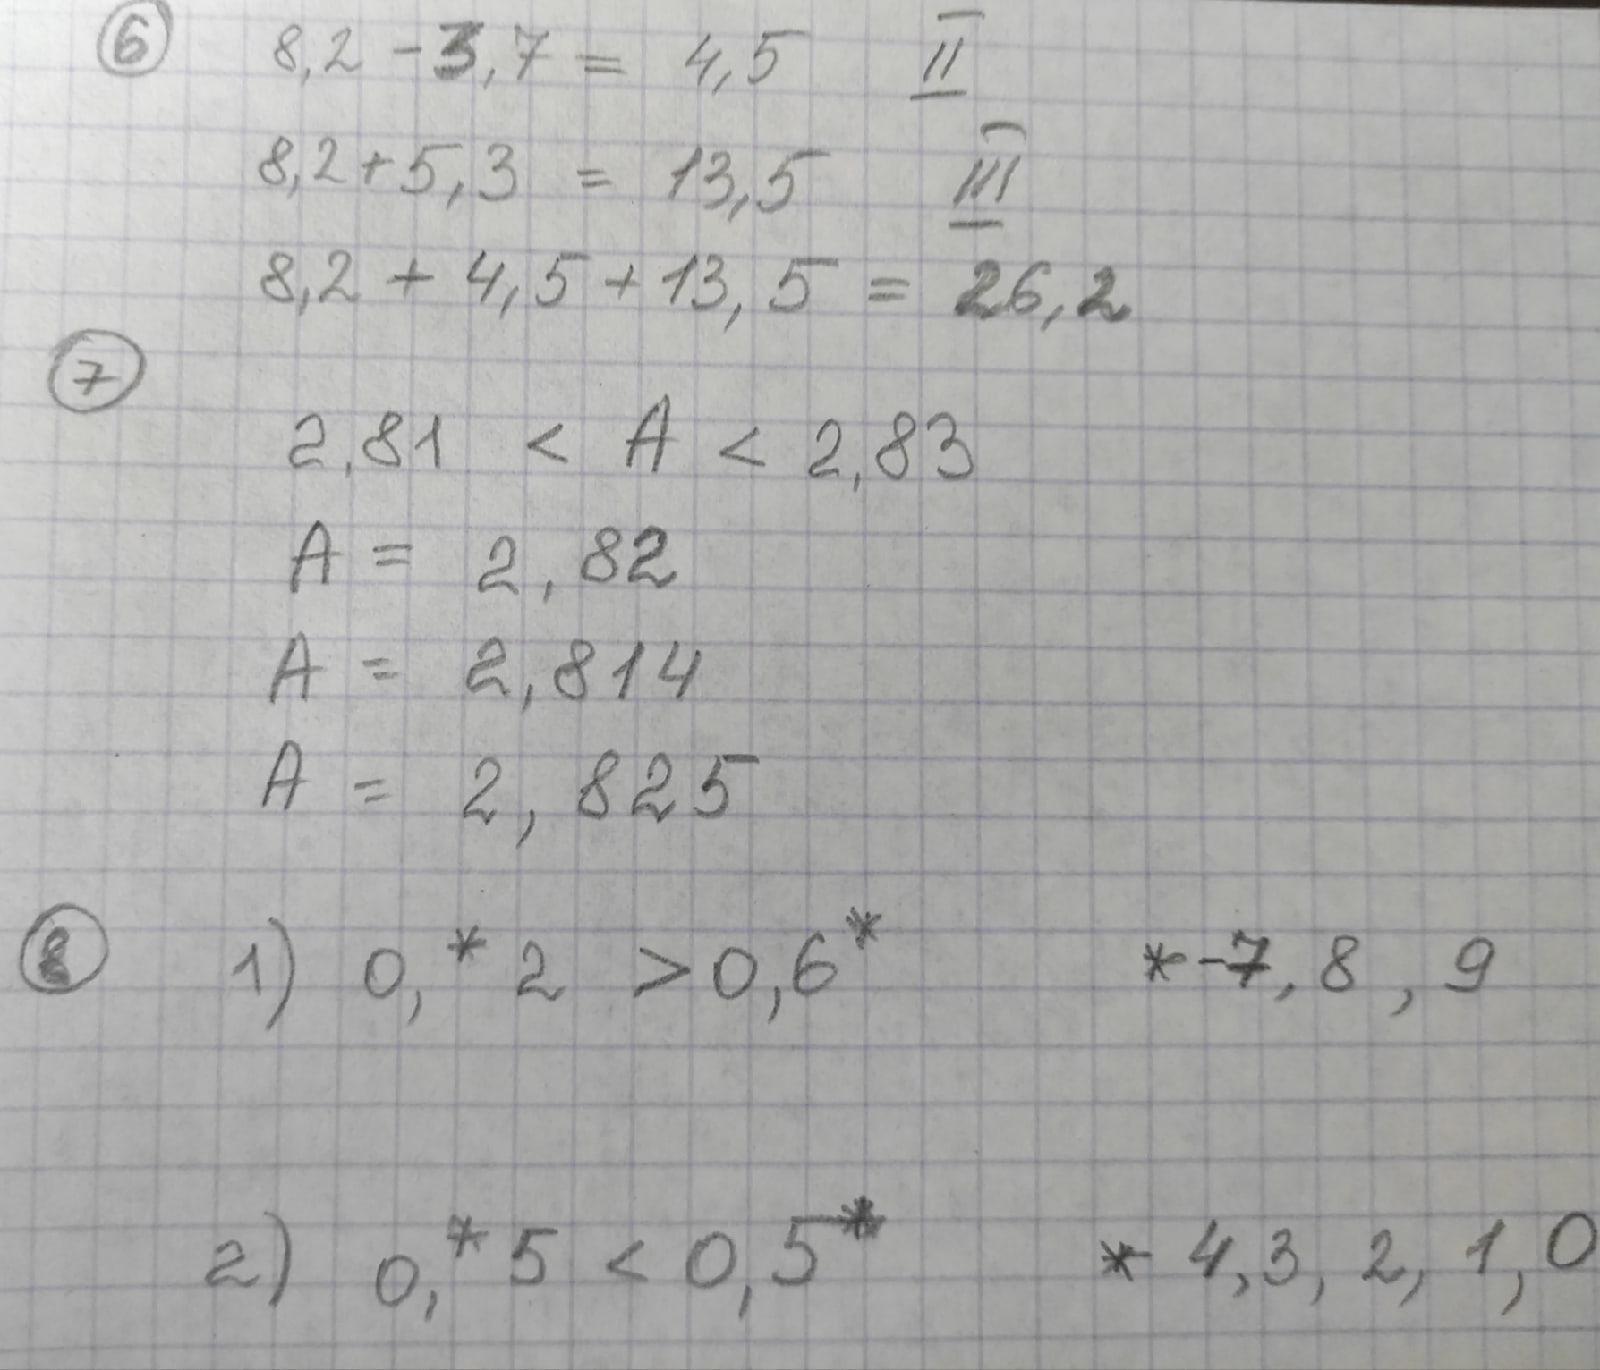 6 8,2 - 3,7 = 4,5 II
8,2 + 5,3 = 13,5 III
8,2 + 4,5 + 13,5 = 26,2
7
2,81 < A < 2,83
A = 2,82
A = 2,814
A = 2,825
8 1) 0,*2 > 0,6* * - 7, 8, 9
2) 0,*5 < 0,5* * 4, 3, 2, 1, 0